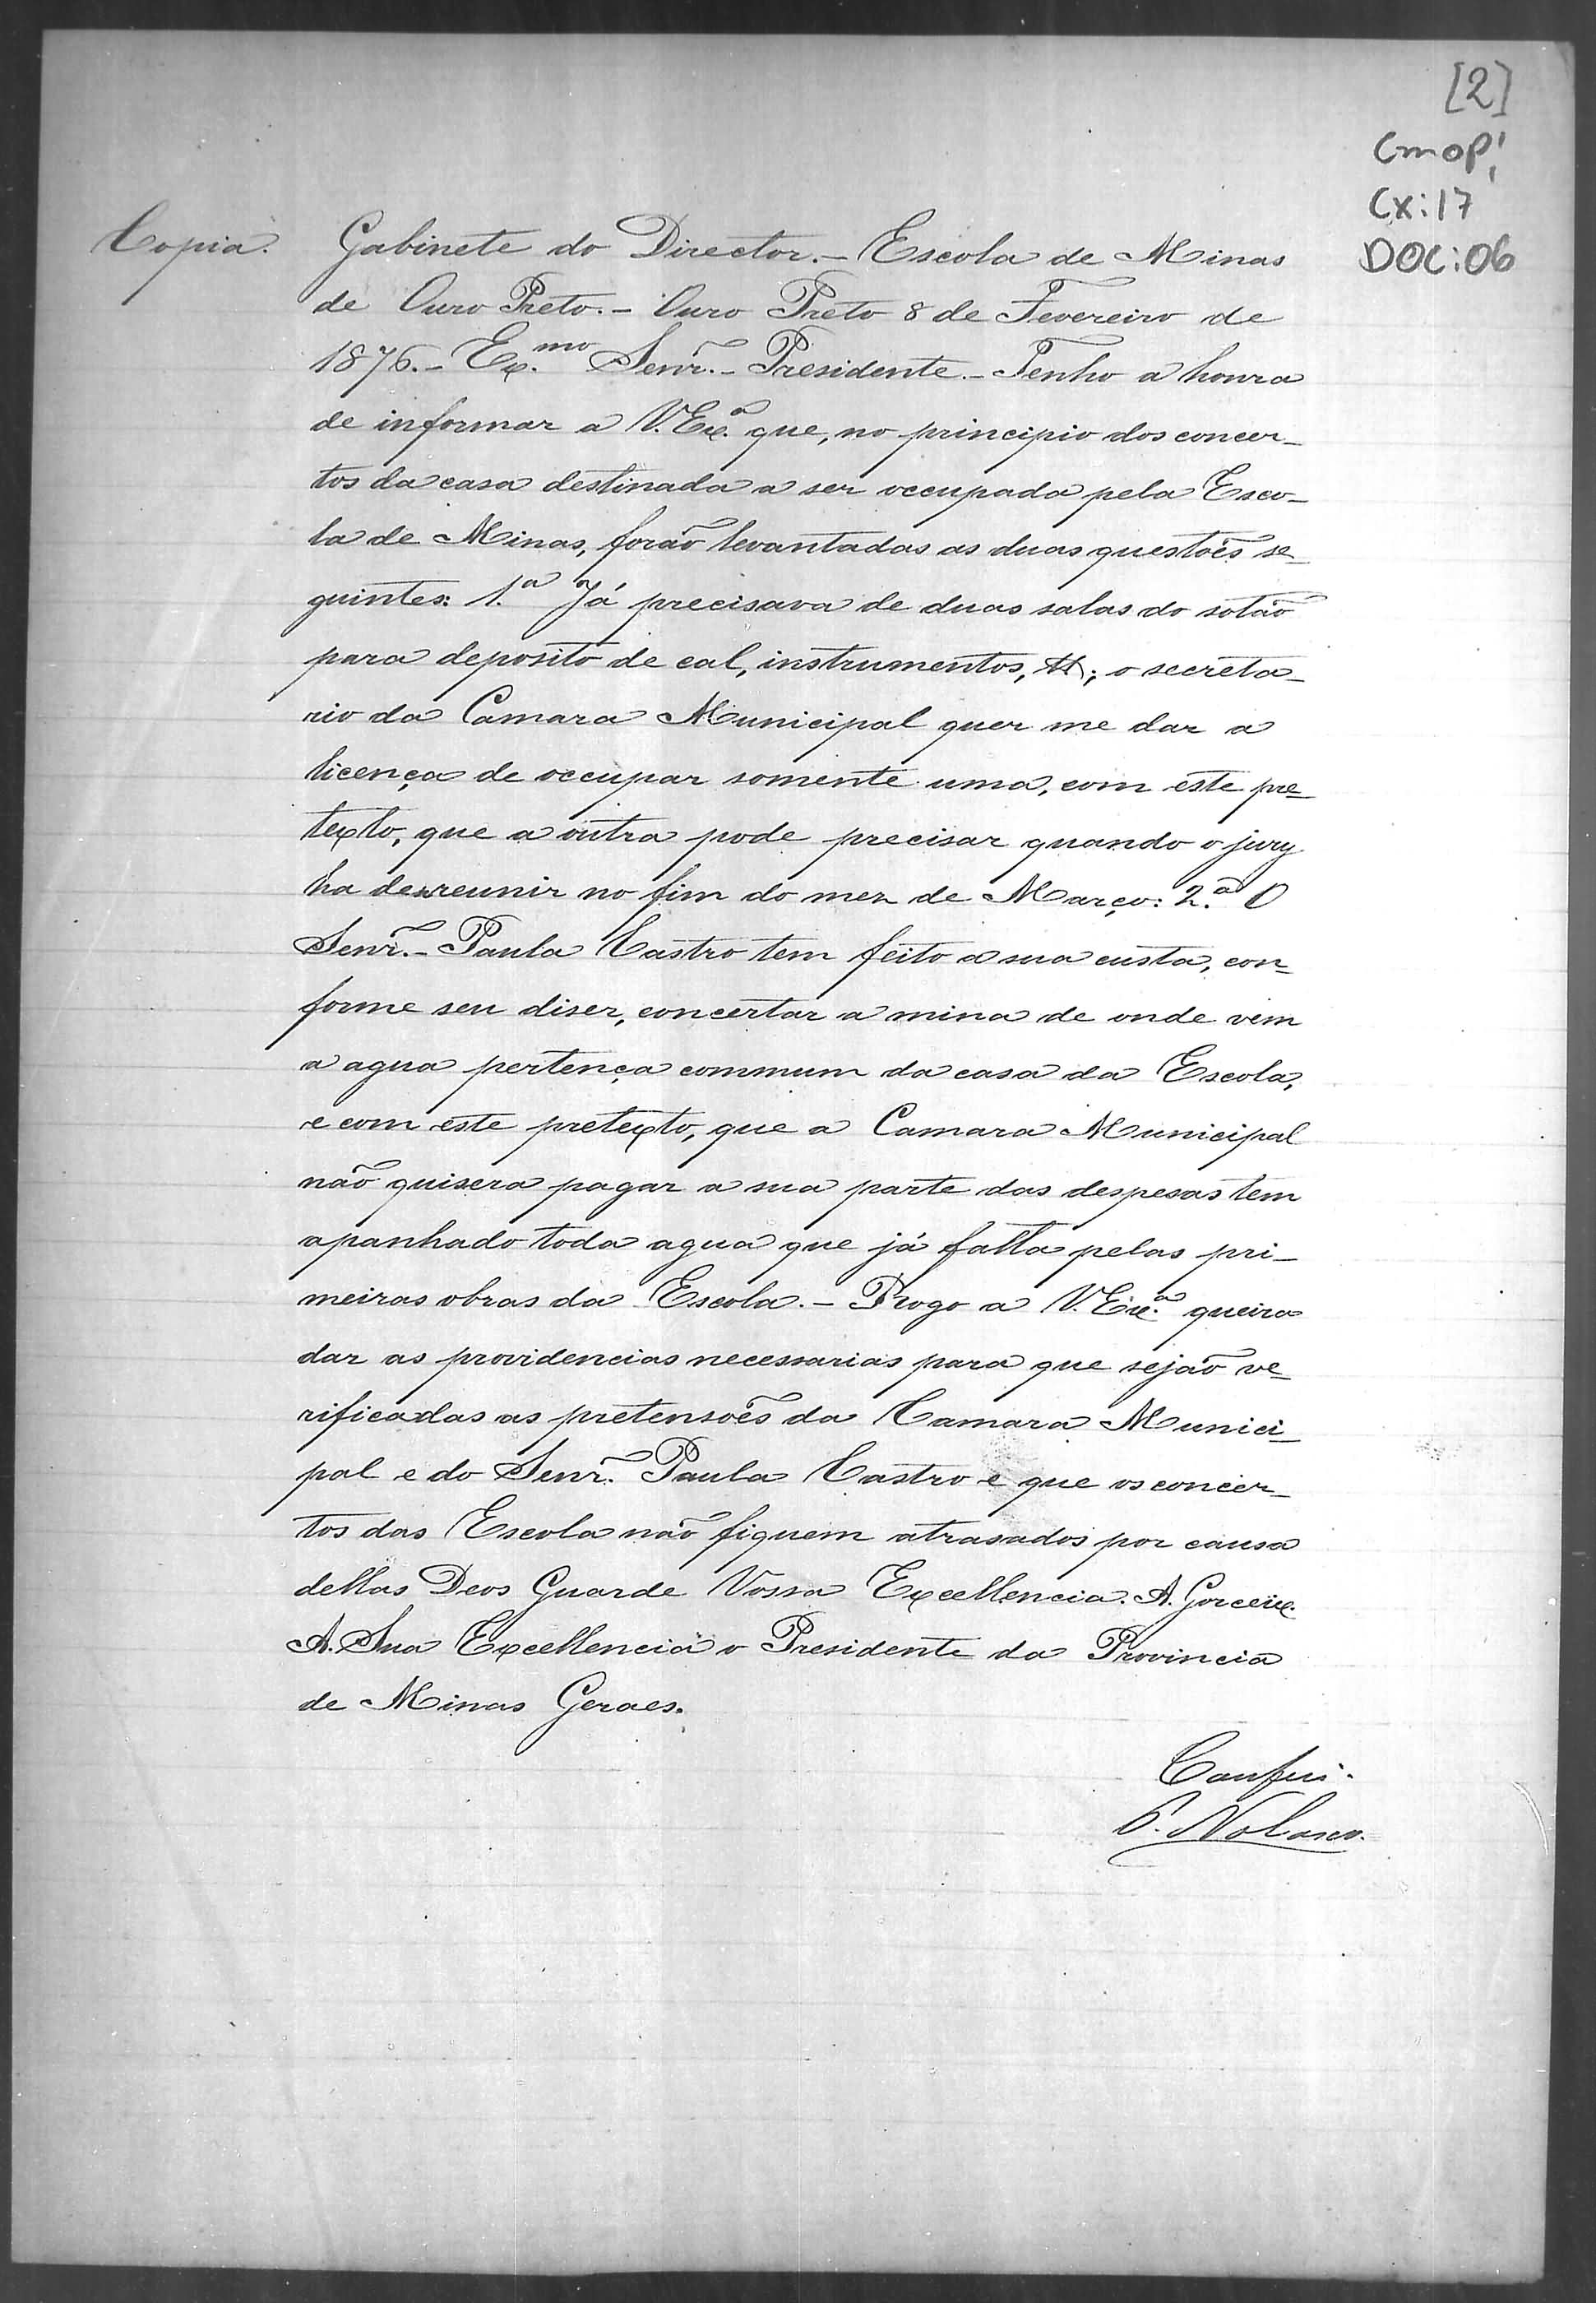 [2]
CmOP!
Cx:17
DOC:06
Copia. Gabinete do Director.- Escola de Minas
de Ouro Preto.- Ouro Preto 8 de Fevereiro de
1876.- Ex.mo Senr.- Presidente.- Tenho a honra
de informar a V. Ex.a que, no principio dos concer-
tos da casa destinada a ser occupada pela Esco-
la de Minas, forão levantadas as duas questões se-
guintes: 1.a Já precisava de duas salas do sotão
para deposito de cal, instrumentos, &; o secreta-
rio da Camara Municipal quer me dar a
licença de occupar somente uma, com este pre-
texto, que a outra pode precisar quando o jury
ha de reunir no fim do mez de Março: 2.a O
Senr.- Paula Castro tem feito a sua custa, con-
forme seu diser, concertar a mina de onde vem
a agua pertença commum da casa da Escola,
e com este pretexto, que a Camara Municipal
não quisera pagar a sua parte das despesas tem
apanhado toda agua que já falta pelas pri-
meiras obras da Escola.- Rogo a V. Ex.a queira
dar as providencias necessarias para que sejão ve-
rificadas as pretensões da Camara Munici-
pal e do Senr. Paula Castro e que os concer-
tos das Escola não fiquem atrasados por causa
dellas Deos Guarde Vossa Excellencia. A. Gorceix.
A. Sua Excellencia o Presidente da Provincia
de Minas Geraes.
Confui.
P. Nolasco.